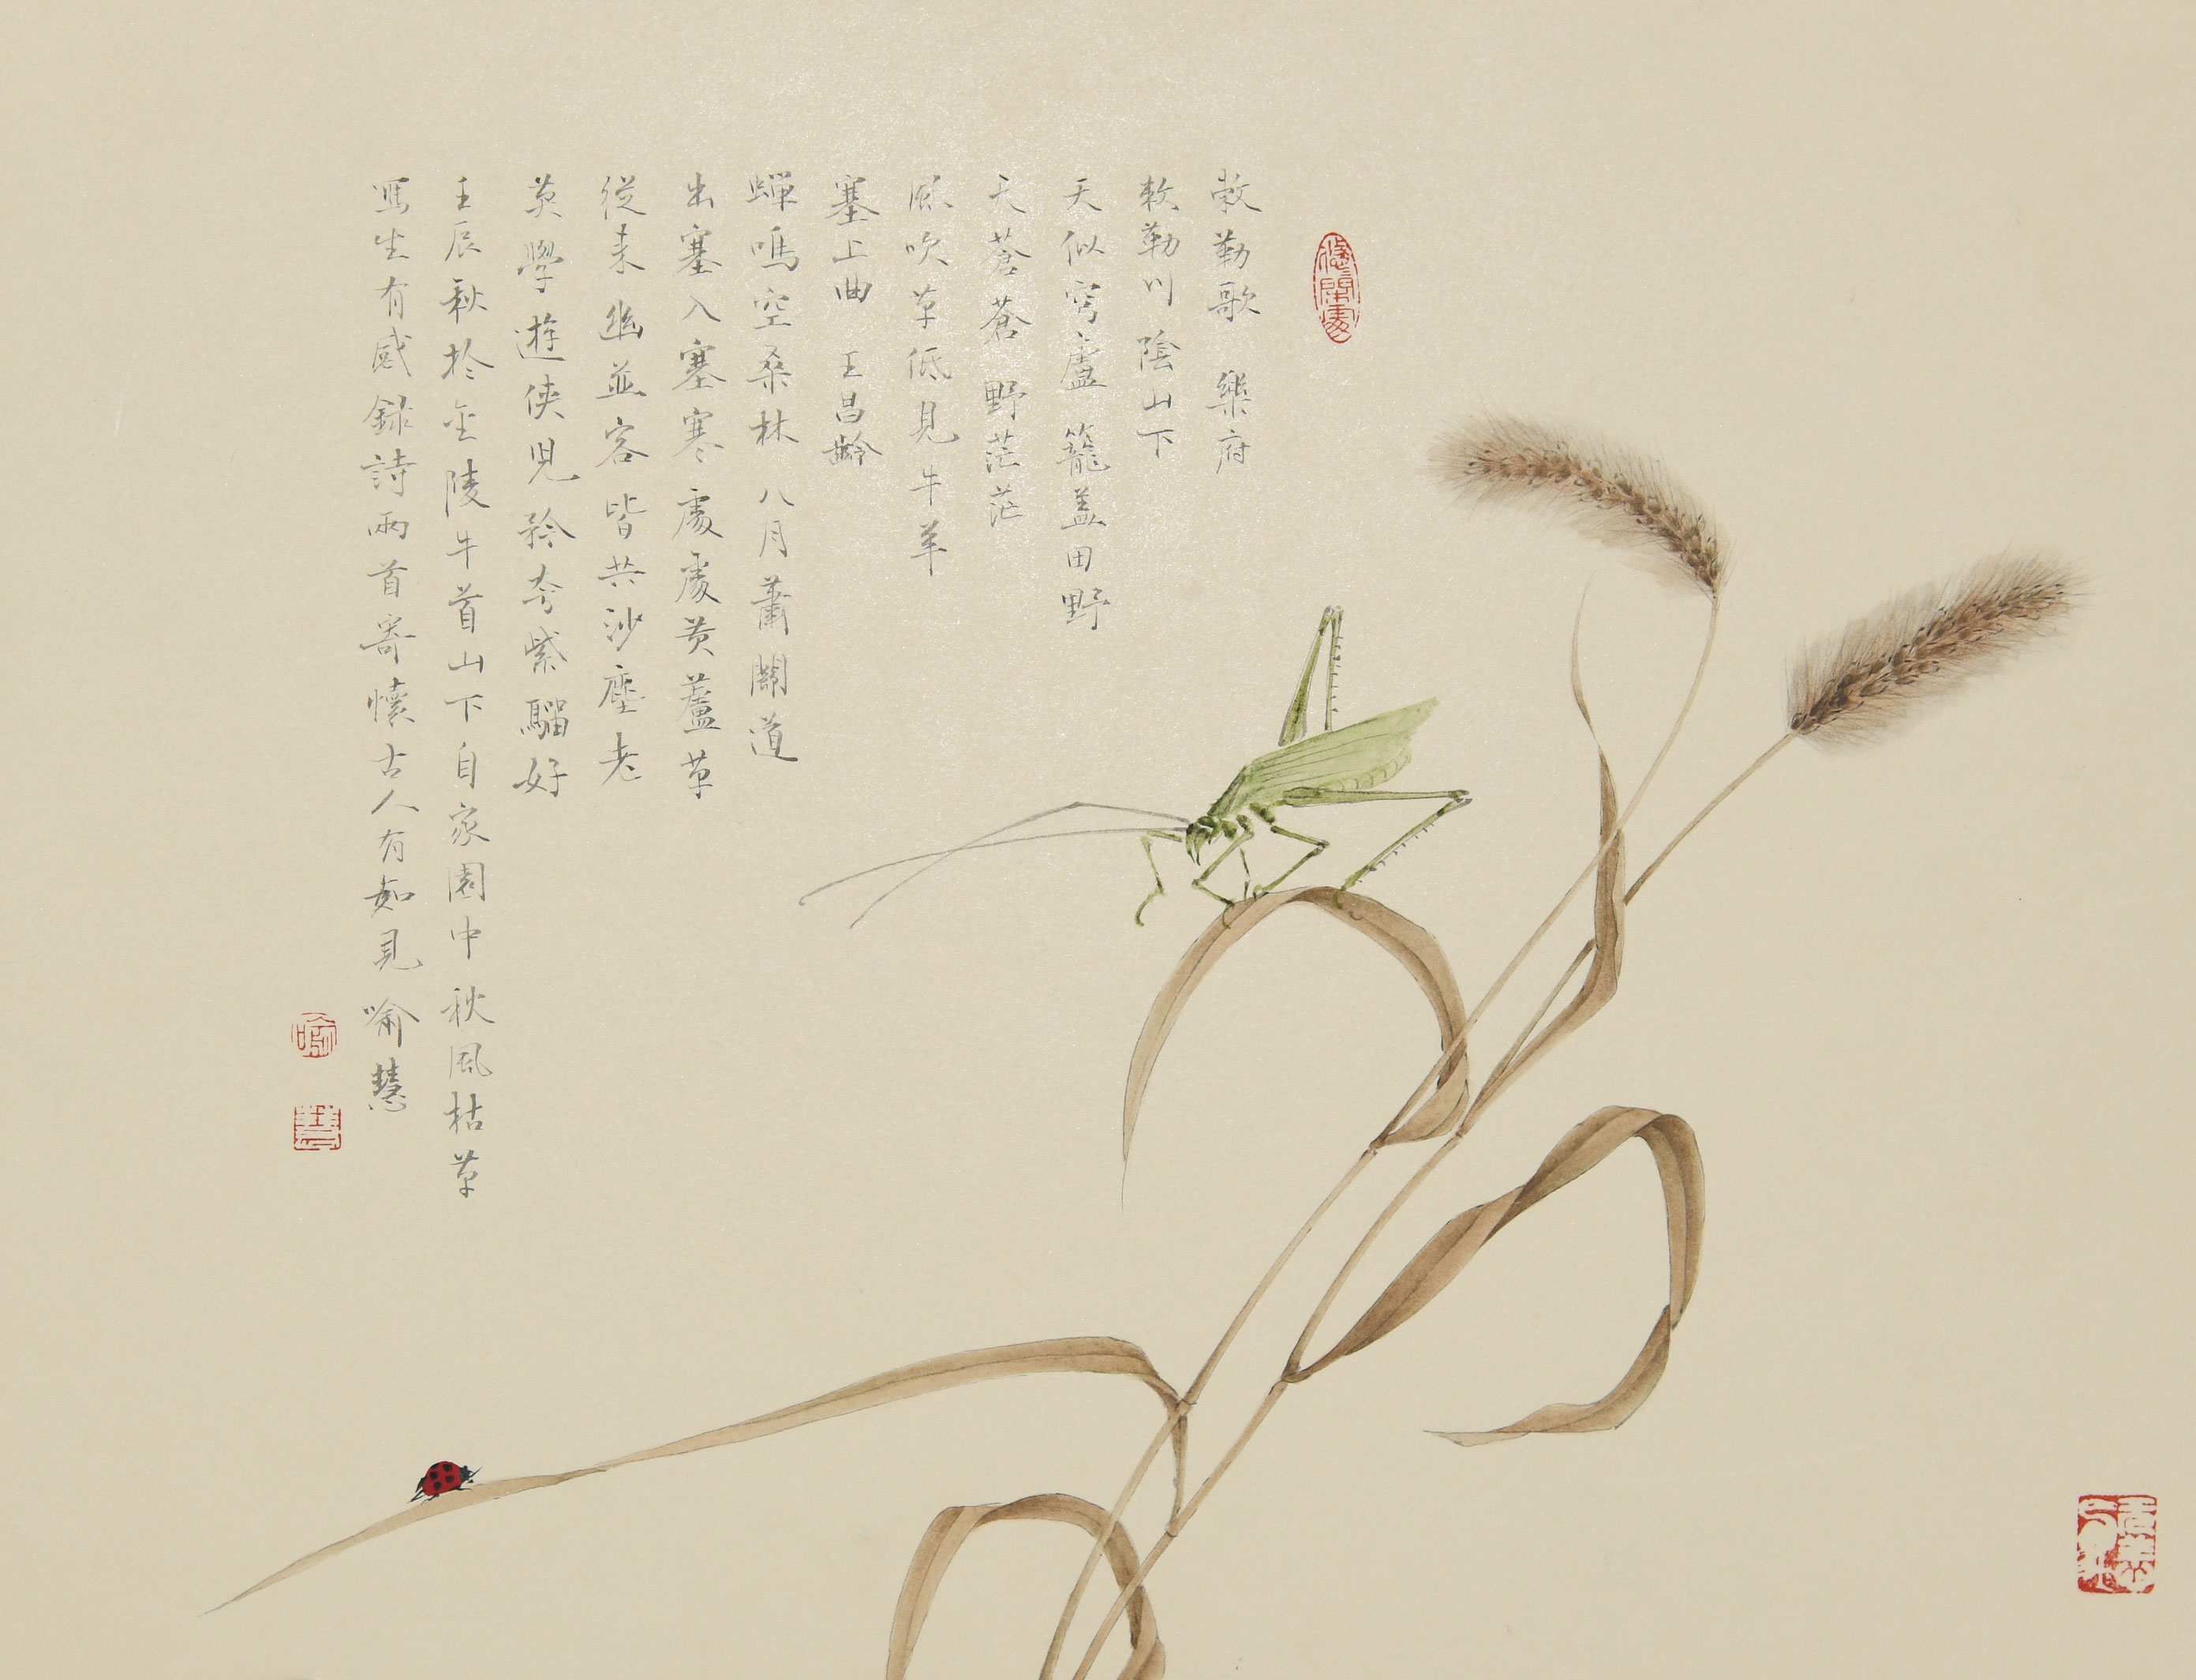 敕勒歌 樂府
敕勒川 陰山下
天似穹廬 籠盖田野
天蒼蒼 野茫茫
風吹草低見牛羊
塞上曲 王昌齡
蟬鳴空桑林 八月蕭關道
出塞入塞寒 處處黄蘆草
從来幽並客 皆共沙塵老
莫學遊俠兒 矜夸紫騮好
壬辰秋於金陵牛首山下自家園中秋風枯草
寫生有感録詩兩首寄懷古人有如見 喻慧
喻
慧